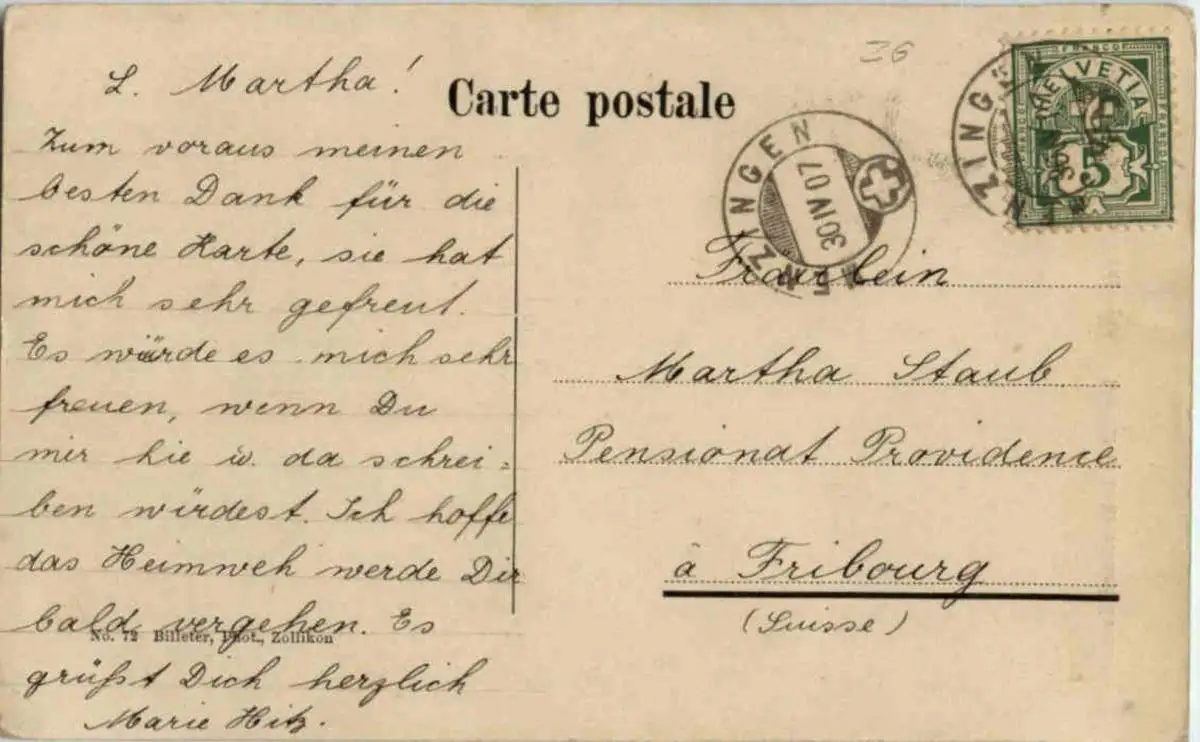 36
L. Martha!
Carte postale
Zum voraus meinen
besten Dank für die
schöne Karte, sie hat
mich sehr gefreut.
Es würde es mich sehr
freuen, wenn Du
mir hie u. da schrei=
ben würdest. Ich hoffe
das Heimweh werde Dir
bald vergehen. Es
grüßt Dich herzlich
Marie Hitz.
No. 72 Billeter, Phot., Zollikon
FRANCO
HELVETIA
5
MENZINGEN
30 IV 07
Fräulein
Martha Staub
Pensionat Providence
à Fribourg
(Suisse)